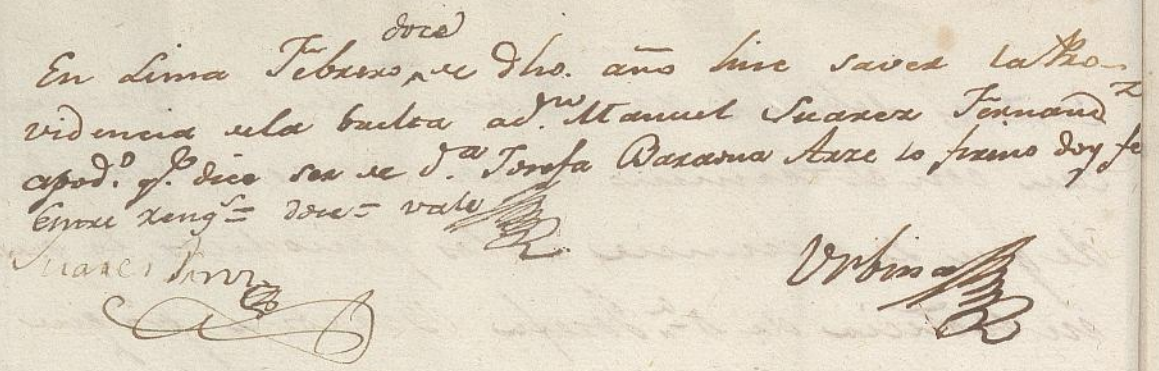 doce
En Lima Febrero, de dho. año hise saver la Pro-
videncia de la buelta a dn. Manuel Suarez Fernandz
apodo. qe. dice ser de da. Teresa lo firmo doy fe
Entre rengs= doce= vale
Suares Frnz
Urbina